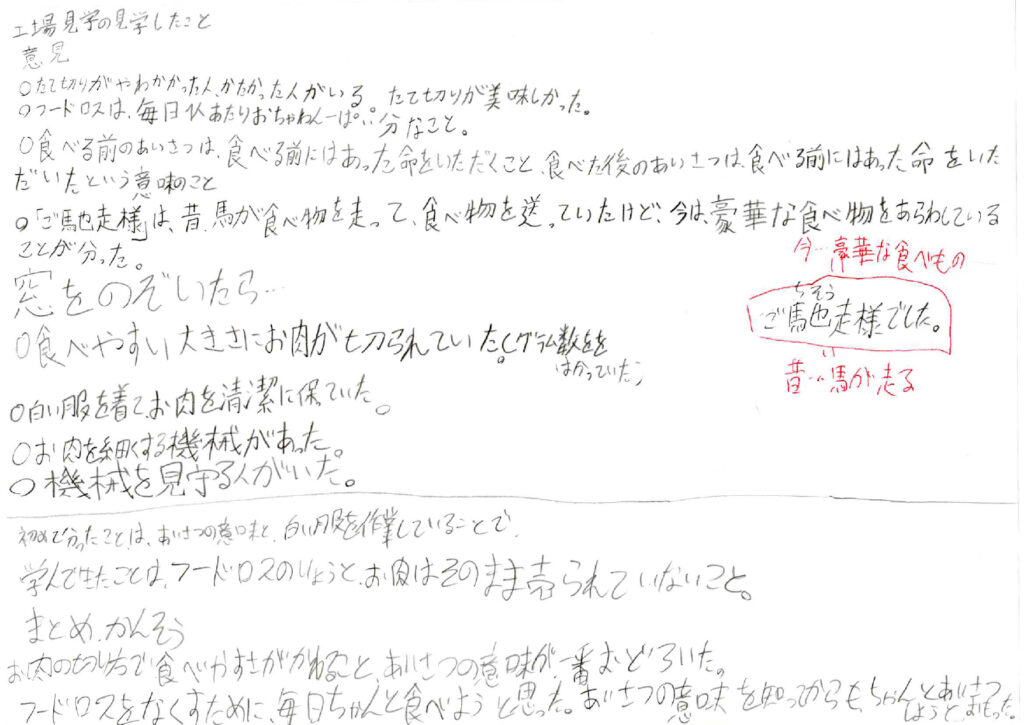 工場見学の見学したこと
意見
○たて切りがやわかかった人、かたかった人がいる。たて切りが美味しかった。
○フードロスは、毎日1人あたりおちゃわん一ぱい分なこと。
○食べる前のあいさつは、食べる前にはあった命をいただくこと、食べた後のあいさつは、食べる前にはあった命をいた
だいたという意味のこと
○「ご馳走様」は、昔、馬が食べ物を走って、食べ物を送っていたけど、今は、豪華な食べ物をあらわしている
ことが分った。
今…豪華な食べもの
ちそう
ご馳走様でした。
昔…馬が走る
窓をのぞいたら…
○食べやすい大きさにお肉が切られていた。(グラム数をを
はかっていた)
○白い服を着て、お肉を清潔に保ていた。
○お肉を細くする機械があった。
○機械を見守る人がいた。
初めて分ったことは、あいさつの意味と、白い服を作業していることで、
学んできたことは、フードロスのりょうと、お肉はそのまま売られていないこと。
まとめ、かんそう
お肉の切り方で食べやすさがかわること、あいさつの意味が一番おどろいた。
フードロスをなくすために、毎日ちゃんと食べようと思った。あいさつの意味を知ってからも、ちゃんとあいさつ
しようとおもった。